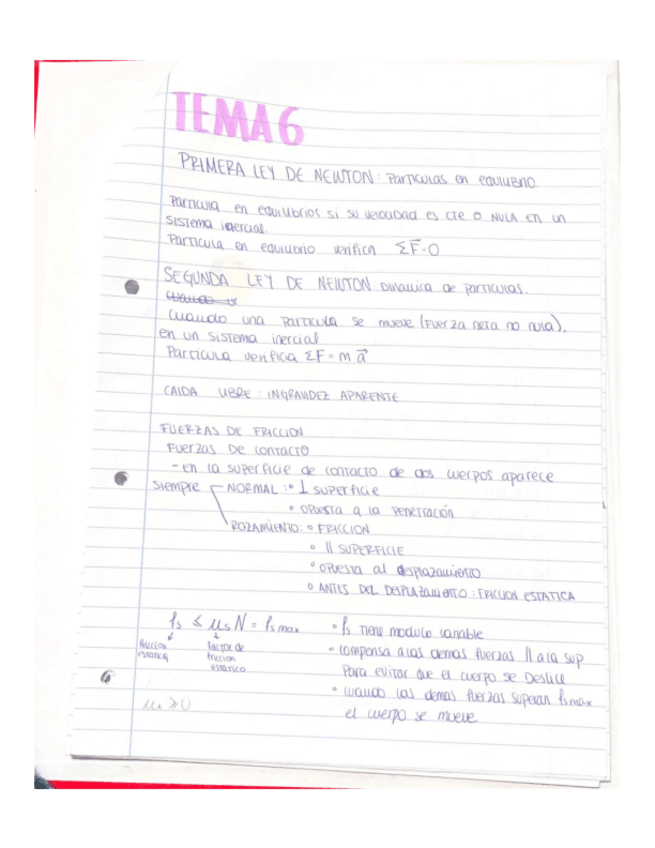 TEMA 6
PRIMERA LEY DE NEWTON: Partículas en equilibrio.
Partícula en equilibrios si su velocidad es cte o nula en un
sistema inercial.
Partícula en equilibrio verifica ΣF⃗=0
SEGUNDA LEY DE NEWTON Dinámica de partículas.
Cuando
Cuando una partícula se mueve (Fuerza neta no nula).
en un sistema inercial
Partícula verifica ΣF = m a⃗
CAIDA LIBRE: INGRAVIDEZ APARENTE
FUERZAS DE FRICCION
Fuerzas De contacto
- En la superficie de contacto de dos cuerpos aparece
siempre NORMAL: • ⊥ SUPERFICIE
• OPUESTA A LA PENETRACIÓN
ROZAMIENTO: • FRICCION
• || SUPERFICIE
• OPUESTA al desplazamiento
• ANTES DEL DESPLAZAMIENTO: FRICCION ESTATICA
fs ≤ μs N = fs max • fs Tiene modulo variable
fuerza estatica factor de friccion estatico • compensa a las demas fuerzas || a la sup
Para evitar que el cuerpo se Deslice
μs ≥ 0 • cuando las demas fuerzas superan fsmax
el cuerpo se mueve